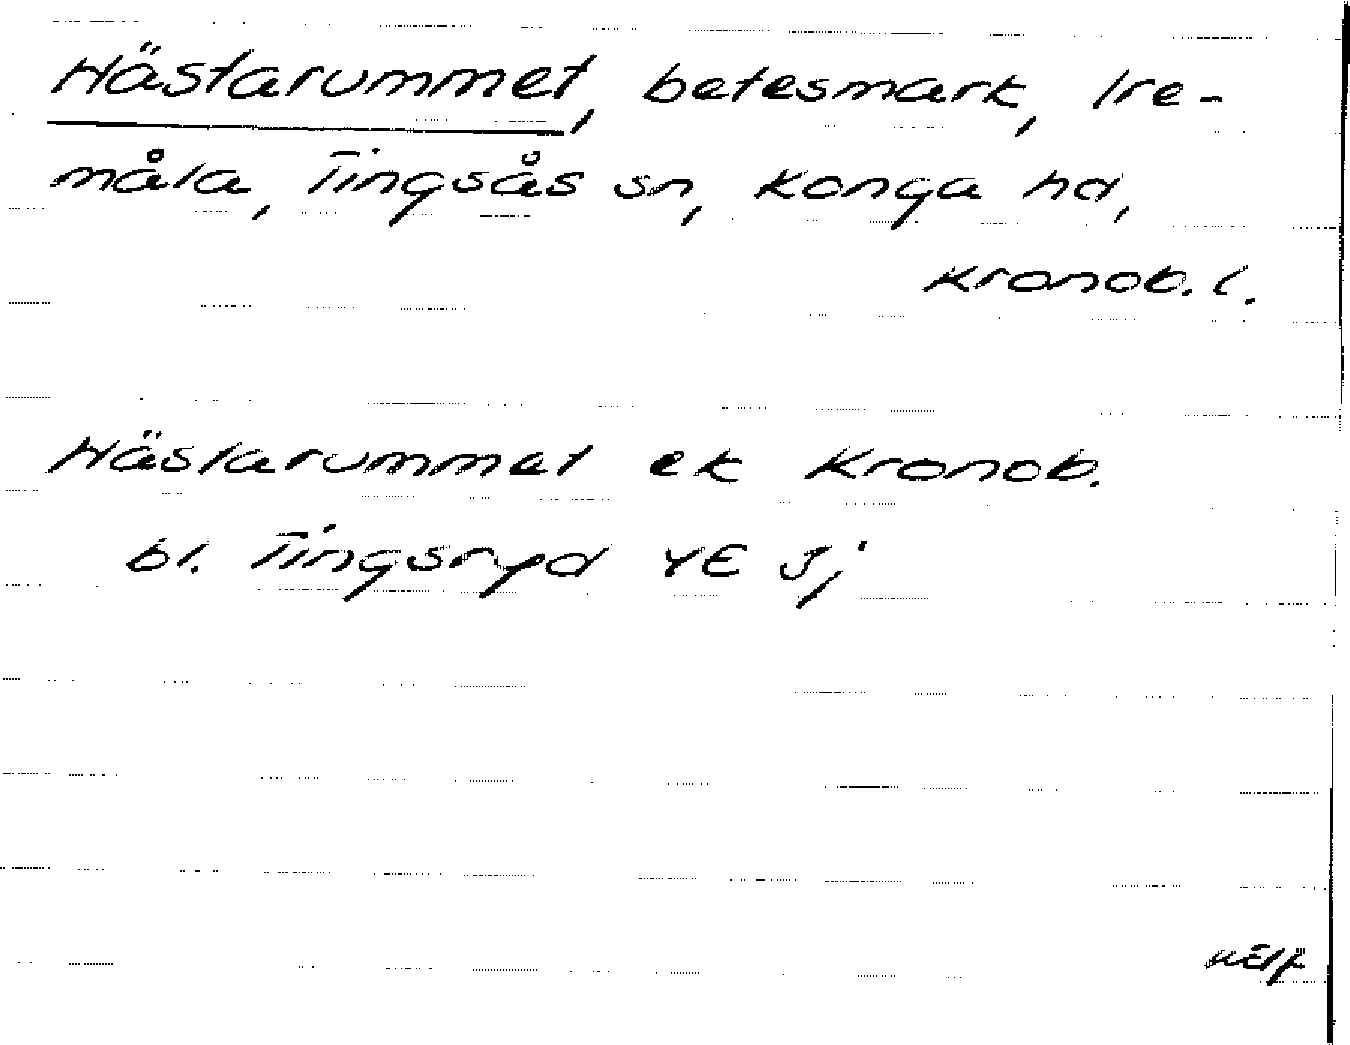 Hästarummet, betesmark, Ire-
måla, Tingsås sn, Konga hd,
Kronob. l.
Hästarummet ek Kronob.
bl. Tingsryd 4E Sj